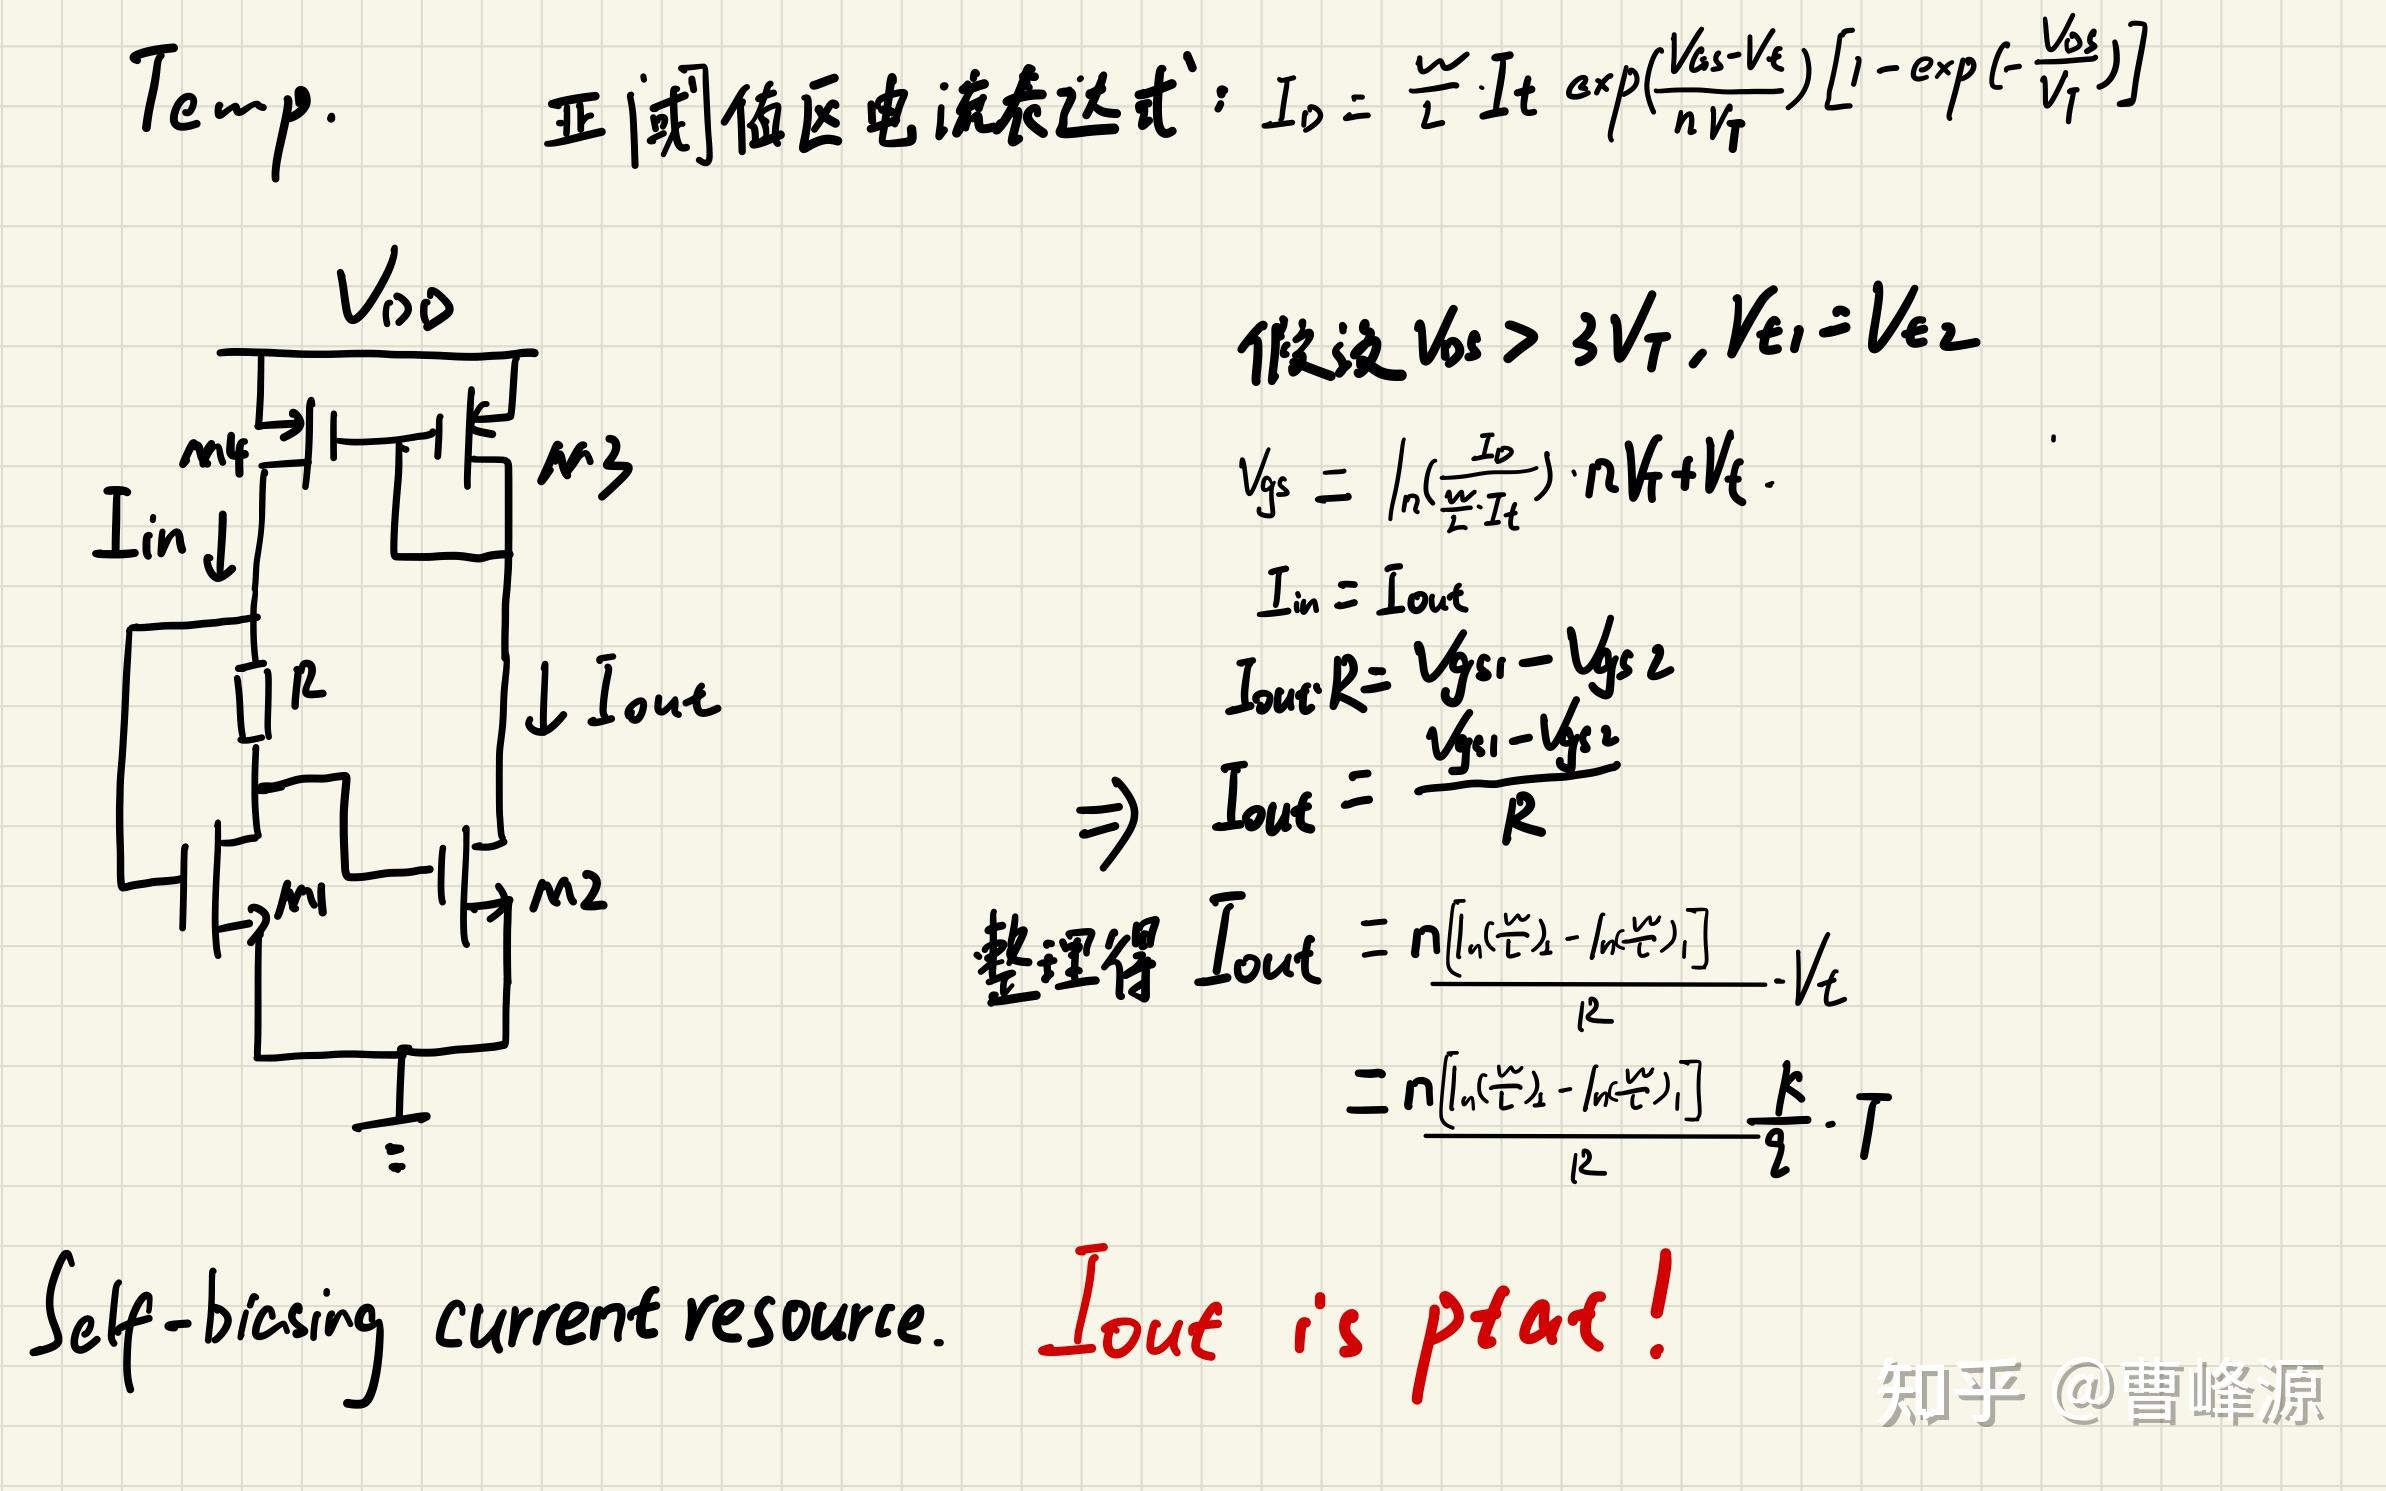 Temp. 亚阈值区电流表达式: I_D = W/L · It exp((VGS-Vt)/(nV_T)) [1-exp(-VDS/V_T)]
VDD
假设 VDS > 3V_T, Vt1 = Vt2
M4 M3
Vgs = ln(I_D/(W/L · It)) · nV_T + Vt.
Iin
Iin = Iout
R
Iout
Iout·R = Vgs1 - Vgs2
⇒ Iout = (Vgs1 - Vgs2)/R
M1 M2
整理得 Iout = n[ln(W/L)2 - ln(W/L)1]/R · Vt
= n[ln(W/L)2 - ln(W/L)1]/R k/q · T
Self-biasing current resource. Iout is ptat!
知乎 @曹峰源